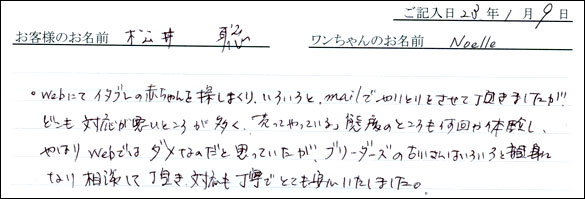 ご記入日 23年1月9日
お客様のお名前 松井 聡 ワンちゃんのお名前 Noelle
・Webにてイタグレの赤ちゃんを探しまくり、いろいろと、mailでやりとりをさせて頂きましたが、
どこも対応が悪いところが多く、「売ってやっている」態度のところも何回か体験し、
やはりWebではダメなのだと思っていたが、ブリーダーズの さんはいろいろと親身に
なり相談して頂き、対応も丁寧でとても安心いたしました。